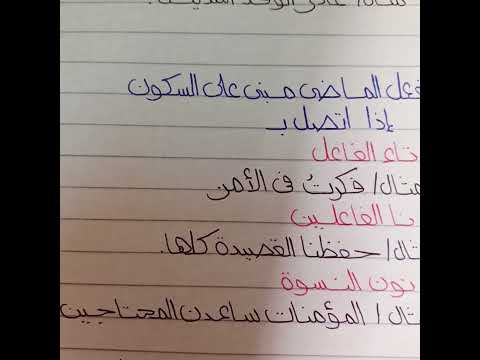 فعل الماضى مبنى على السكون
إذا اتصل بـ
تاء الفاعل
مثال/ فكرتُ فى الأمن
نا الفاعلين
ثال/ حفظنا القصيدة كلها.
نون النسوة
ثال/ المؤمنات ساعدن المحتاجين